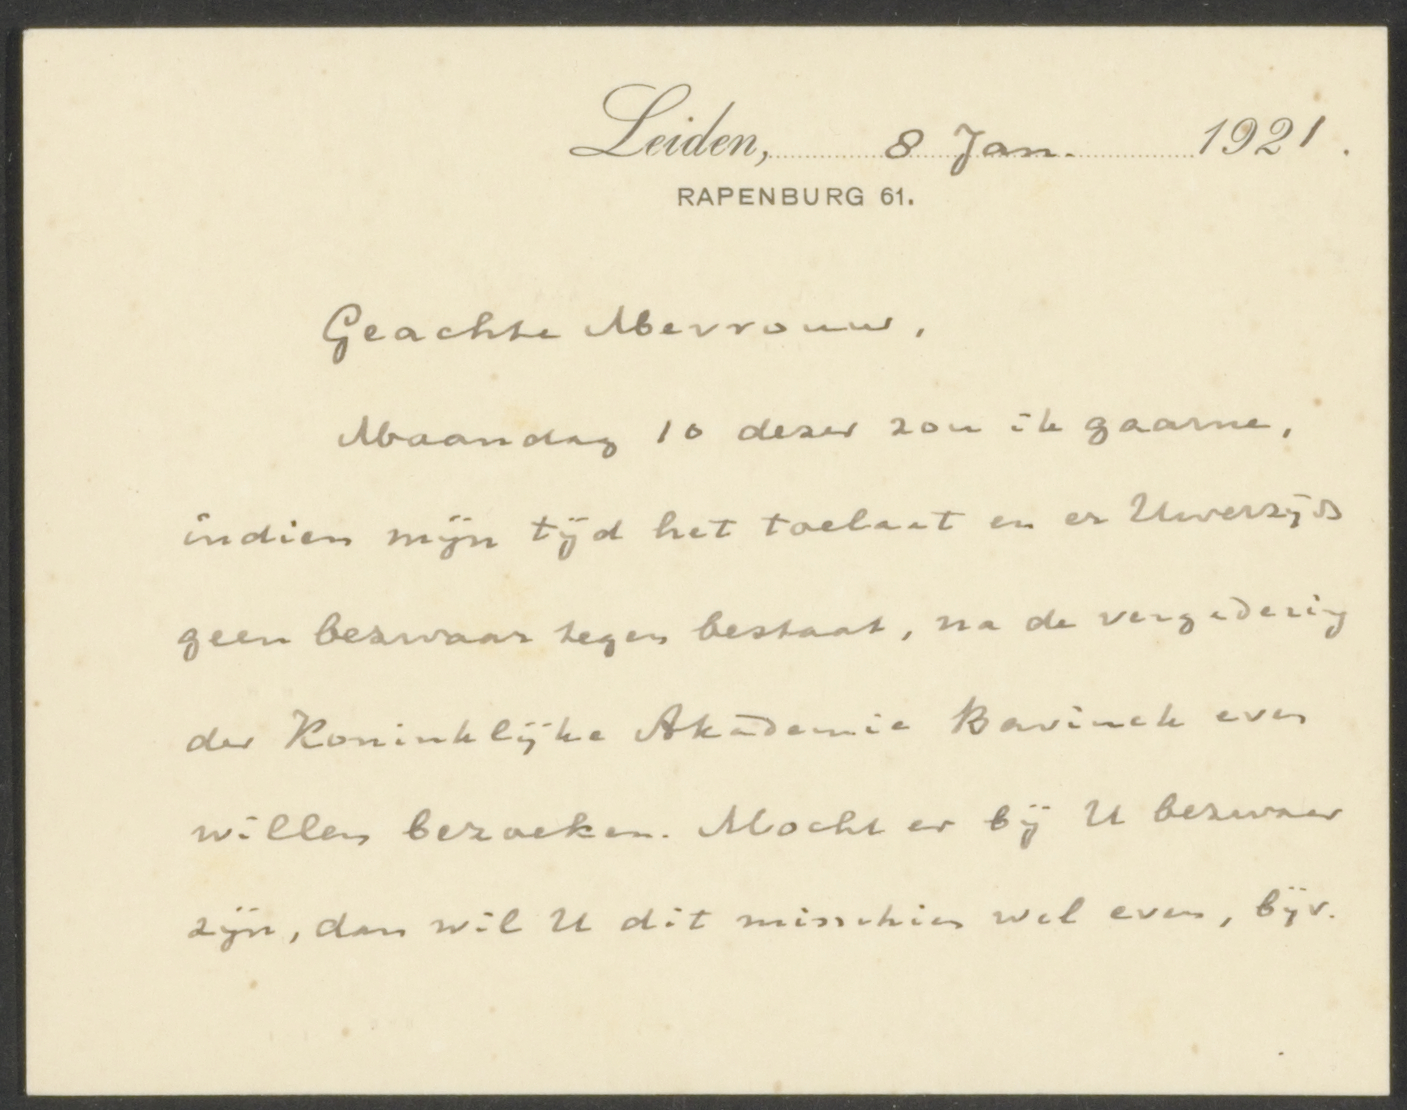 Leiden, 8 Jan. 1921.
RAPENBURG 61.
Geachte Mevrouw,
Maandag 10 dezer zou ik gaarne,
indien mijn tijd het toelaat en er Uwerzijds
geen bezwaar tegen bestaat, na de vergadering
der Koninklijke Akademie Bavinck even
willen bezoeken. Mocht er bij U bezwaar
zijn, dan wil U dit misschien wel even, bijv.